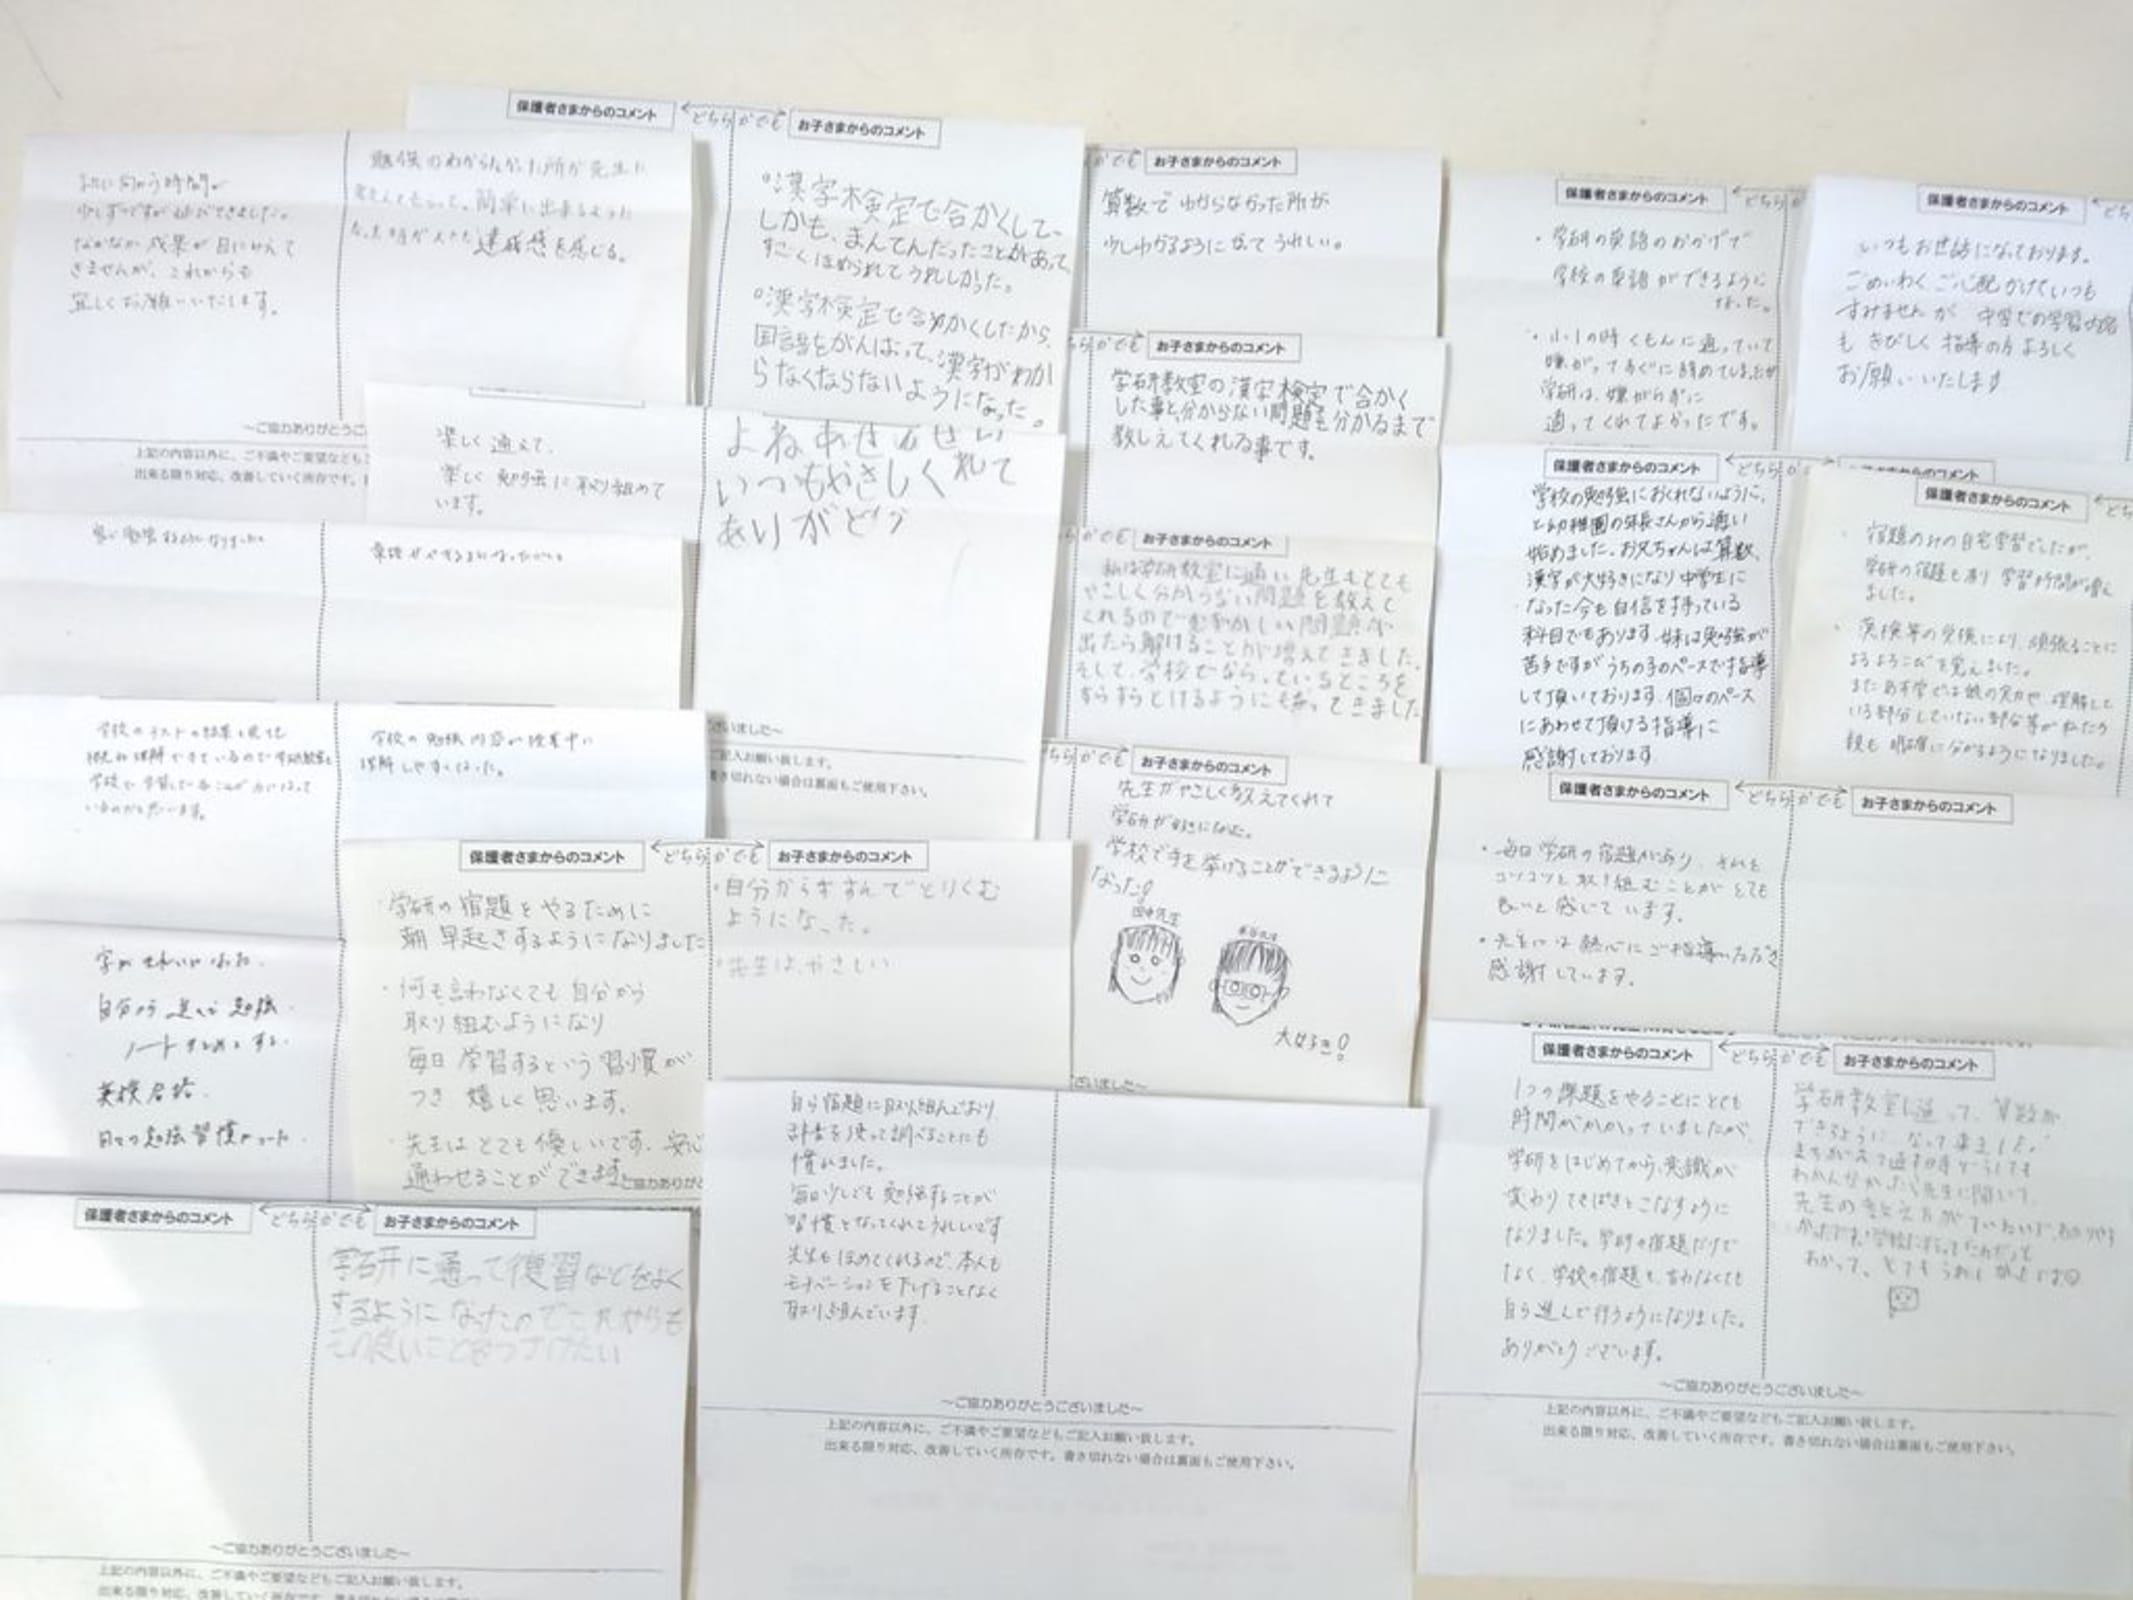 机に向かう時間が
少しずつですが延びてきました。
なかなか成果が目にみえて
きませんが、これからも
宜しくお願いいたします。
勉強のわからなかった所が先生に
教えてもらって、簡単に出来るようになった
達成感を感じる。
〜ご協力ありがとうご
上記の内容以外に、ご不満やご要望なども
出来る限り対応、改善していく所存です。
保護者さまからのコメント
どちらかでも
お子さまからのコメント
○漢字検定で合かくして、
しかも、まんてんだったことがあって、
すごくほめられてうれしかった。
○漢字検定で合かくしたから
国語をがんばって、漢字がわか
らなくならないようになった。
楽しく通えて、
楽しく勉強に取り組めて
います。
いつもやさしく
ありがとう
お子さまからのコメント
算数でわからなかった所が
少しわかるようになってうれしい。
お子さまからのコメント
学研教室の漢字検定で合かく
した事と、分からない問題を分かるまで
教しえてくれる事です。
お子さまからのコメント
私は学研教室に通い先生もとても
やさしく分からない問題を教えて
くれるのでむずかしい問題が
出たら解けることが増えてきました。
そして、学校でならっているところを
すらすらとけるようにもなってきました
お子さまからのコメント
先生がやさしく教えてくれて
学研が好きになった。
学校で手を挙げることができるように
なった!
田中先生
大好き!
保護者さまからのコメント
・学研の英語のおかげで
学校の英語ができるように
なった。
・小1の時くもんに通っていて
嫌がってすぐに辞めてしまったが
学研は、嫌がらずに
通ってくれてよかったです。
保護者さまからのコメント
いつもお世話になっております。
ごめいわくご心配かけていつも
すみませんが 中学での学習
もきびしく指導の方よろしく
お願いいたします
保護者さまからのコメント
学校の勉強におくれないように、
と幼稚園の年長さんから通い
始めました。お兄ちゃんは算数、
漢字が大好きになり中学生に
なった今も自信を持っている
科目でもあります。妹は勉強が
苦手ですがうちの子のペースで指導
して頂いております。個々のペース
にあわせて頂ける指導に
感謝しております
保護者さまからのコメント
・宿題のみの自宅学習でしたが、
学研の宿題も有り学習時間が増え
ました。
・英検等の受検により、頑張ることに
よるよろこびを覚えました。
いる部分していない部分等が私たち
親も明確に分かるようになりました。
保護者さまからのコメント
どちらかでも
お子さまからのコメント
・毎日学研の宿題があり、それを
コツコツと取り組むことがとても
良いと感じています。
・先生には熱心にご指導いただき
感謝しています。
学校のテストの結果を見ても
学校の勉強内容が授業中に
理解しやすくなった。
字がきれいになった。
自分から進んで勉強、
ノートまとめをする。
英検合格。
日々の勉強習慣がついた。
保護者さまからのコメント
どちらかでも
お子さまからのコメント
・学研の宿題をやるために
朝早起きするようになりました
・何も言わなくても自分から
取り組むようになり
毎日学習するという習慣が
つき嬉しく思います。
・先生はとても優しいです。安心
通わせることができます
・自分からすすんでとりくむ
ようになった。
・先生は、やさしい
ご記入お願い致します。
書き切れない場合は裏面もご使用下さい。
保護者さまからのコメント
どちらかでも
お子さまからのコメント
学研に通って復習などをよく
するようになったのでこれからも
この良いことをつづけたい
〜ご協力ありがとうございました〜
上記の内容以外に、ご不満やご要望などもご記入お願い致します。
自ら宿題に取り組んでおり
辞書を使って調べることにも
慣れました。
毎日少しでも勉強することが
習慣となってくれてうれしいです
先生もほめてくれるので、本人も
モチベーションを下げることなく
取り組んでいます
〜ご協力ありがとうございました〜
上記の内容以外に、ご不満やご要望などもご記入お願い致します。
出来る限り対応、改善していく所存です。書き切れない場合は裏面もご使用下さい。
保護者さまからのコメント
どちらかでも
お子さまからのコメント
1つの課題をやることにとても
時間がかかっていましたが
学研をはじめてから、意識が
変わりてきぱきとこなすように
なりました。学研の宿題だけで
なく、学校の宿題も、言わなくても
自ら進んで行うようになりました。
ありがとうございます。
学研教室に通って、算数が
できるようになって来ました!
わかんなかったら先生に聞いて、
先生の教え方がていねいで、わかりやす
わかって、とてもうれしかったです
〜ご協力ありがとうございました〜
上記の内容以外に、ご不満やご要望などもご記入お願い致します。
出来る限り対応、改善していく所存です。書き切れない場合は裏面もご使用下さい。